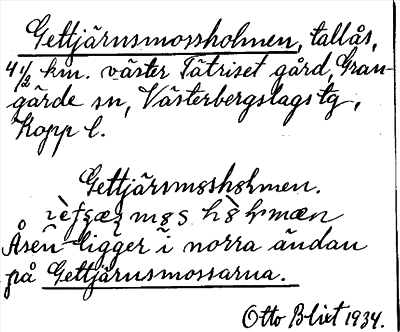 Gettjärnsmossholmen, tallås,
4 1/2 km. väster Tätriset gård, Gran-
gärde sn, Västerbergslags tg,
Kopp l.
Gettjärsmosholmen.
Åsen ligger i norra ändan
på Gettjärnsmossarna.
Otto Blixt 1934.